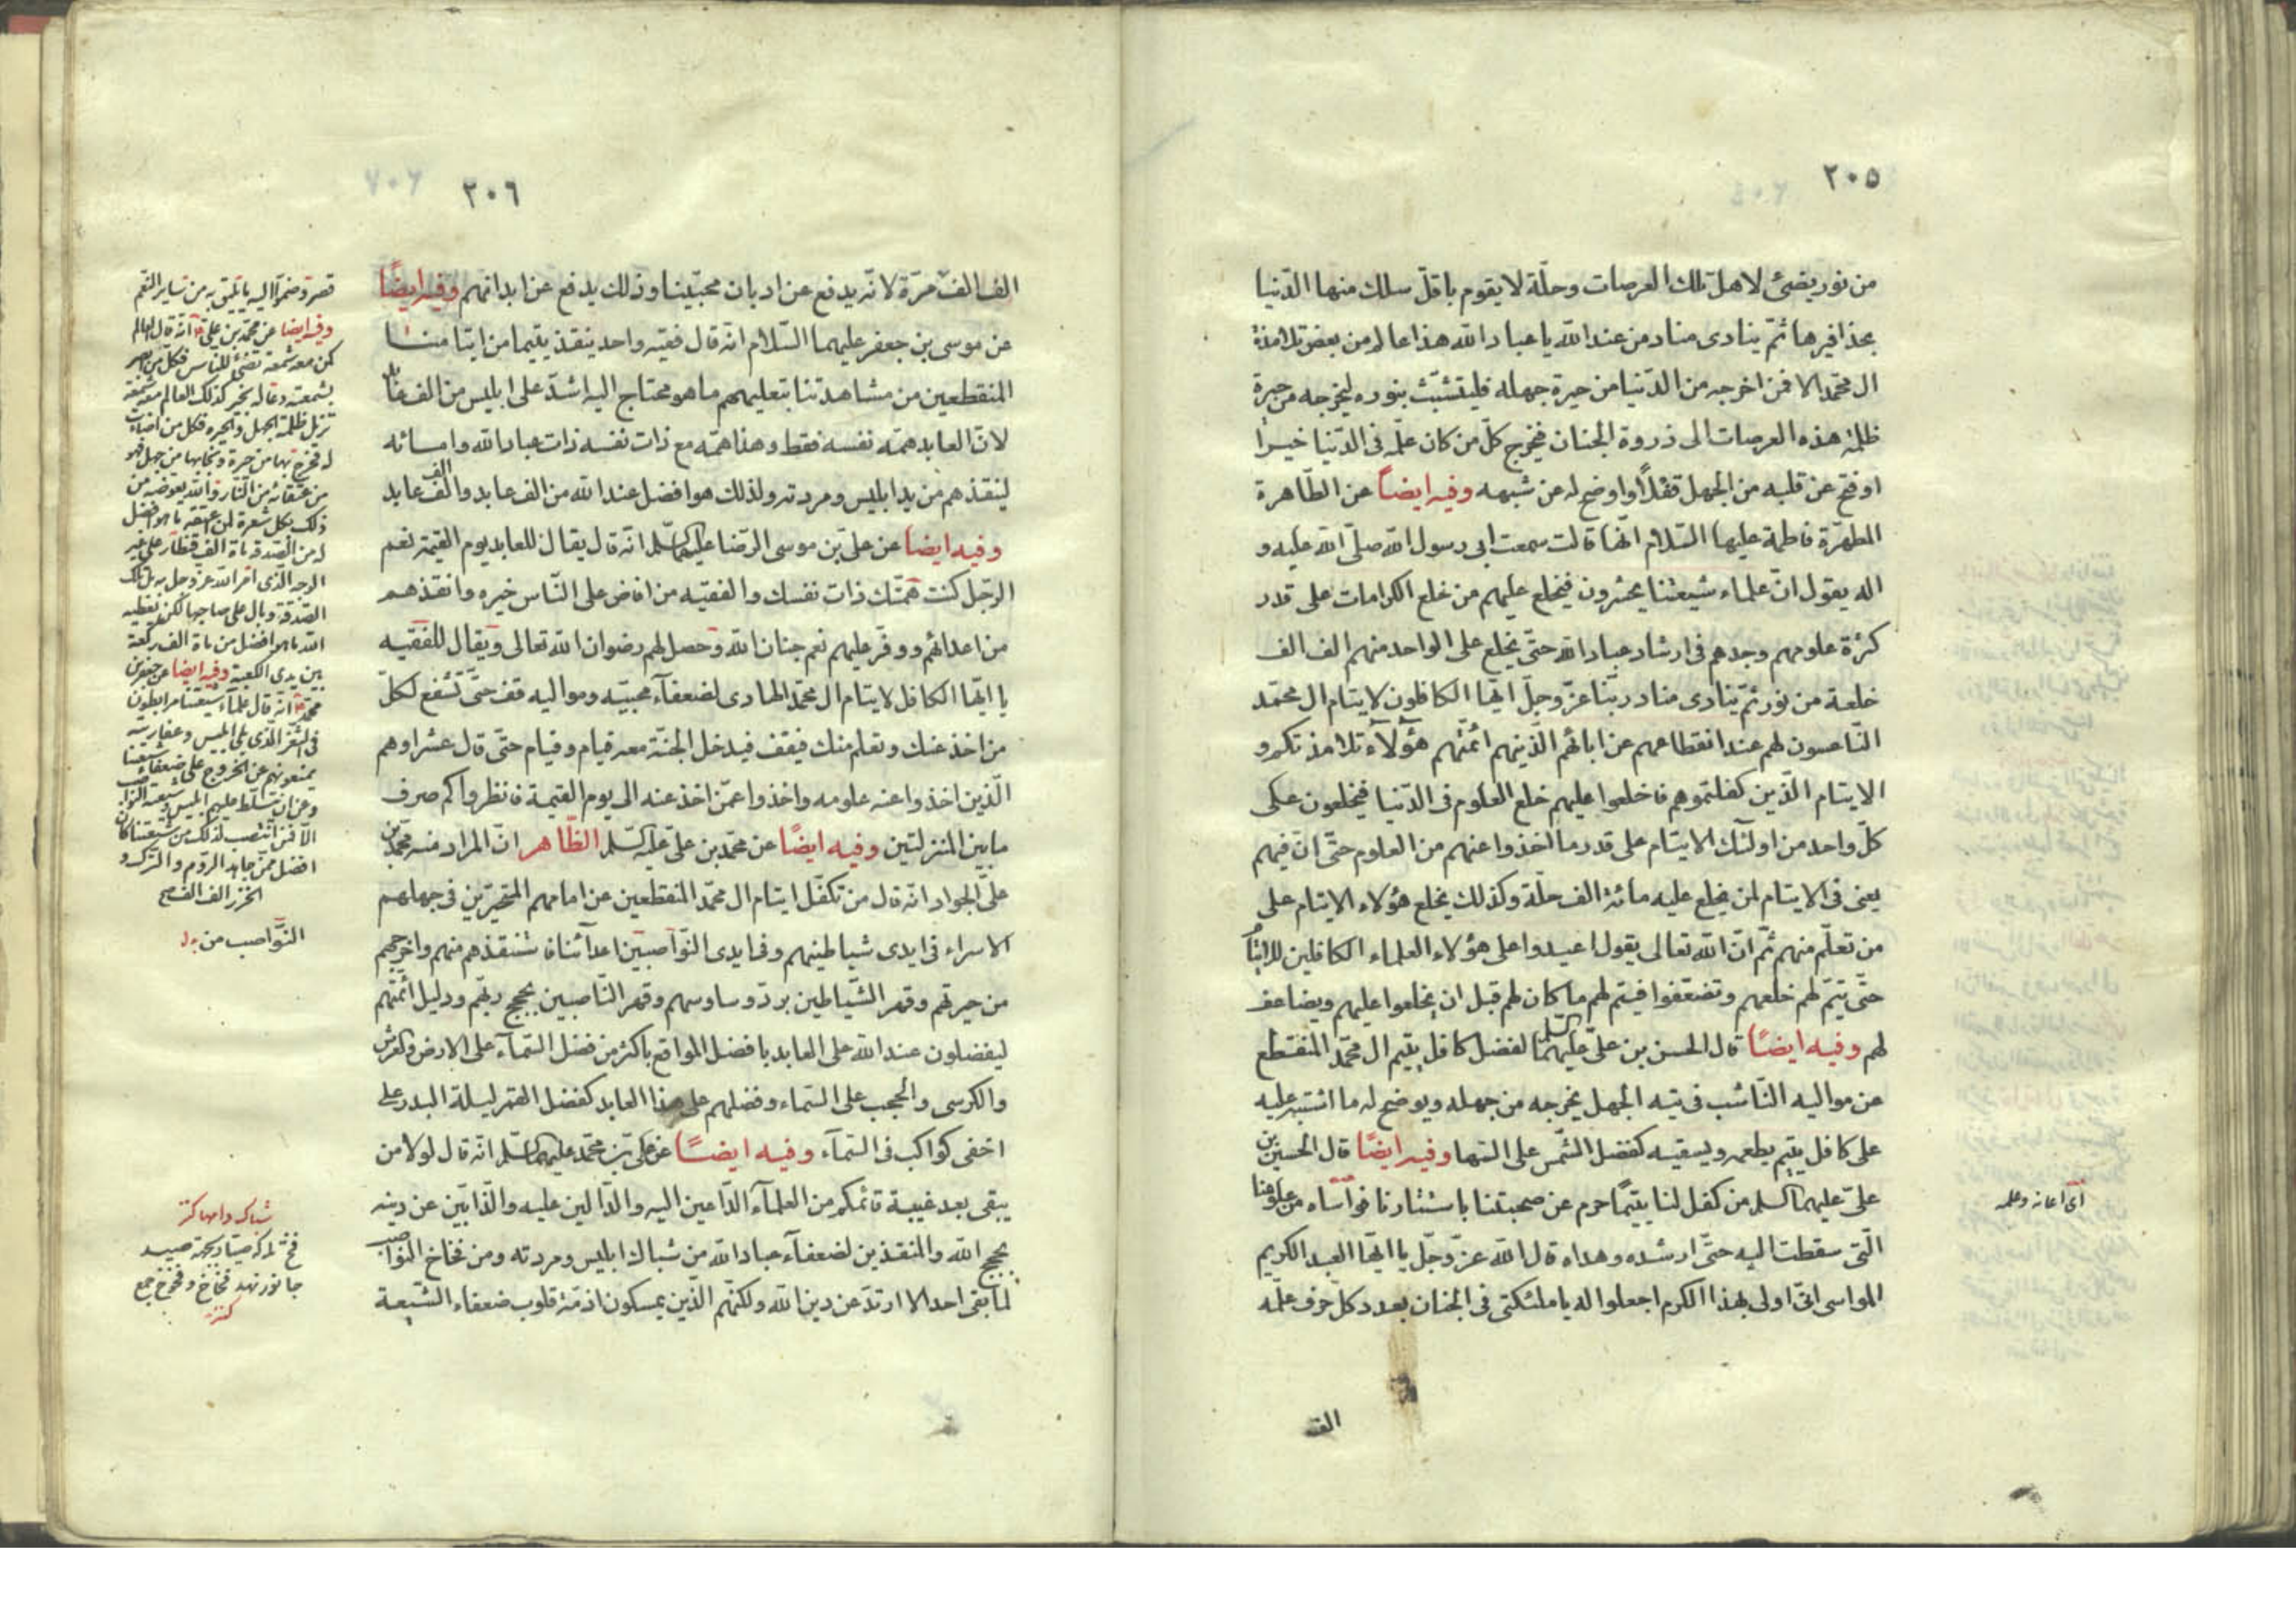 ٢٠٥
من نور يضئ لاهل تلك العرصات وحلّة لا يقوم باقلّ سلك منها الدّنيا
بحذافيرها ثمّ ينادى مناد من عند الله يا عباد الله هذا عالم من بعض تلامذة
ال محمّد الا فمن اخرجه من الدّنيا من حيرة جهله فليتشبّث بنوره ليخرجه من حيرة
ظلمة هذه العرصات الى ذروة الجنان فيخرج كلّ من كان علّمه فى الدّنيا خيرا
او فتح عن قلبه من الجهل قفلاً او اوضح له عن شبهه وفيه ايضاً عن الطّاهرة
المطهّرة فاطمة عليها السّلام انّها قالت سمعت ابى رسول الله صلّى الله عليه و
اله يقول انّ علماء شيعتنا يحشرون فيخلع عليهم من خلع الكرامات على قدر
كثرة علومهم وجدهم فى ارشاد عباد الله حتّى يخلع على الواحد منهم الف الف
خلعة من نور ثمّ ينادى مناد ربّنا عزّ وجلّ ايّها الكافلون لايتام ال محمّد
النّاعسون لهم عند انقطاعهم عن ابائهم الّذينهم ائمّتهم هؤلآء تلامذتكم و
الايتام الّذين كفلتموهم فاخلعوا عليهم خلع العلوم فى الدّنيا فيخلعون على
كلّ واحد من اولئك الايتام على قدر ما اخذوا عنهم من العلوم حتّى انّ فيهم
يعنى فى الايتام لمن يخلع عليه مائة الف حلّة وكذلك يخلع هؤلاء الايتام على
من تعلّم منهم ثمّ انّ الله تعالى يقول اعيدوا على هؤلاء العلماء الكافلين للايتام
حتّى يتمّ لهم خلعهم وتضعفوا فيتم لهم ما كان لهم قبل ان يخلعوا عليهم ويضاعف
لهم وفيه ايضًا قال الحسن بن علىّ عليهما السّلم لفضل كافل يتيم ال محمّد المنقطع
عن مواليه النّاشب فى تيه الجهل يخرجه من جهله ويوضح له ما اشتبه عليه
على كافل يتيم يطعمه ويسقيه كفضل الشّمس على السّها وفيه ايضًا قال الحسين بن
علىّ عليهما السلم من كفل لنا يتيمًا حرم عن صحبتنا باستتارنا فواساه من علومنا
الّتى سقطت اليه حتّى ارشده وهداه قال الله عزّ وجلّ يا ايّها العبد الكريم
المواسى انّى اولى بهذا الكرم اجعلوا له يا ملئكتى فى الجنان بعدد كلّ حرف علّمه
اى اعانه وعلمه
الف
٢٠٦
الف الف مرّة لانّه يدفع عن اديان محبّينا وذلك يدفع عن ابدانهم وفيه ايضًا
عن موسى بن جعفر عليهما السّلام انّه قال فقيه واحد ينقذ يتيما من ايتامنا
المنقطعين من مشاهدتنا بتعليمهم ما هو محتاج اليه اشدّ على ابليس من الف عابد
لانّ العابد همّه نفسه فقط وهذا همّه مع ذات نفسه ذات عباد الله وامائه
لينقذهم من يد ابليس ومردته ولذلك هو افضل عند الله من الف عابد والف الف عابد
وفيه ايضاً عن علىّ بن موسى الرّضا عليهما السّلم انّه قال يقال للعابد يوم القيمة نعم
الرّجل كنت همّتك ذات نفسك والفقيه من افاض على النّاس خيره وانقذهم
من اعدائهم ووفّر عليهم نعم جنان الله وحصل لهم رضوان الله تعالى ويقال للفقيه
يا ايّها الكافل لايتام ال محمّد الهادى لضعفآء محبيّه ومواليه قف حتّى تشفع لكلّ
من اخذ عنك وتعلم منك فيقف فيدخل الجنّة معه فيام وفيام حتّى قال عشرا وهم
الّذين اخذوا عنه علومه واخذوا عمّن اخذ عنه الى يوم القيمة فانظروا كم صرف
ما بين المنزلتين وفيه ايضًا عن محمّد بن علىّ عليه السّلم الظّاهر انّ المراد منه محمّد بن
علىّ الجواد انّه قال من تكفّل ايتام ال محمّد المنقطعين عن امامهم المتحيّرين فى جهلهم
الاسراء فى ايدى شياطينهم وفى ايدى النّواصبين اعدآئنا فاستنقذهم منهم واخرجهم
من حيرتهم وقهر الشّياطين بردّ وساوسهم وقهر النّاصبين بحجج ربّهم ودليل ائمّتهم
ليفضلون عند الله على العابد بافضل المواقع باكثر من فضل السّمآء على الارض والعرش
والكرسى والحجب على السّماء وفضلهم على هذا العابد كفضل القمر ليلة البدر على
اخفى كواكب فى السّمآء وفيه ايضًا عن علىّ بن محمّد عليهما السّلم انّه قال لولا من
يبقى بعد غيبة قائمكم من العلمآء الدّاعين اليه والدّالين عليه والذّابّين عن دينه
بحجج الله والمنقذين لضعفآء عباد الله من شباك ابليس ومردته ومن فخاخ النّواصب
لما بقى احد الا ارتدّ عن دين الله ولكنّهم الّذين يمسكون ازمّة قلوب ضعفاء الشّيعة
وفيه ايضا عن محمّد بن علىّ انّه قال العالم
كمن معه شمعة تضئ للناس فكل من ابصر
بشمعته دعا له بخير كذلك العالم معه شمعة
تزيل ظلمة الجهل والحيره فكل من اضاءت
له فخرج بها من حيرة ونجا بها من جهل فهو
من عتقائه من النّار والله يعوضه من
ذلك بكل شعرة لمن اعتقه ما هو افضل
له من الصّدقة بمائة الف قنطار على غير
الوجه الّذى امر الله عز وجل به بل تلك
الصّدقة وبال على صاحبها لكن يعطيه
الله ما هو افضل من مائة الف ركعة
بين يدى الكعبة وفيه ايضا عن جعفر بن
محمّد انه قال علمآء شيعتنا مرابطون
فى الثّغر الّذى يلى ابليس وعفاريته
يمنعونهم عن الخروج على ضعفاء شيعتنا
وعن ان يتسلّط عليهم ابليس وشيعته النّواصب
الا فمن انتصب لذلك من شيعتنا كان
افضل ممّن جاهد الروم والترك و
الخزر الف الف
النّواصب من
شباك دامها كنز